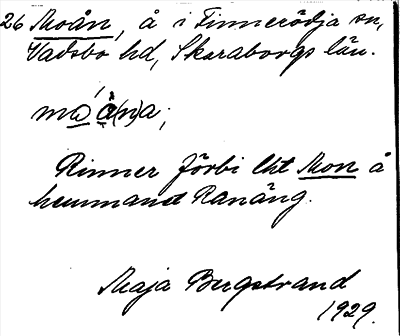 26 Moån, å i Finnerödja sn,
Vadsbo hd, Skaraborgs län.
mo å(n)a;
Rinner förbi lht Mon å
hemmanet Ranäng.
Maja Bergstrand
1929.